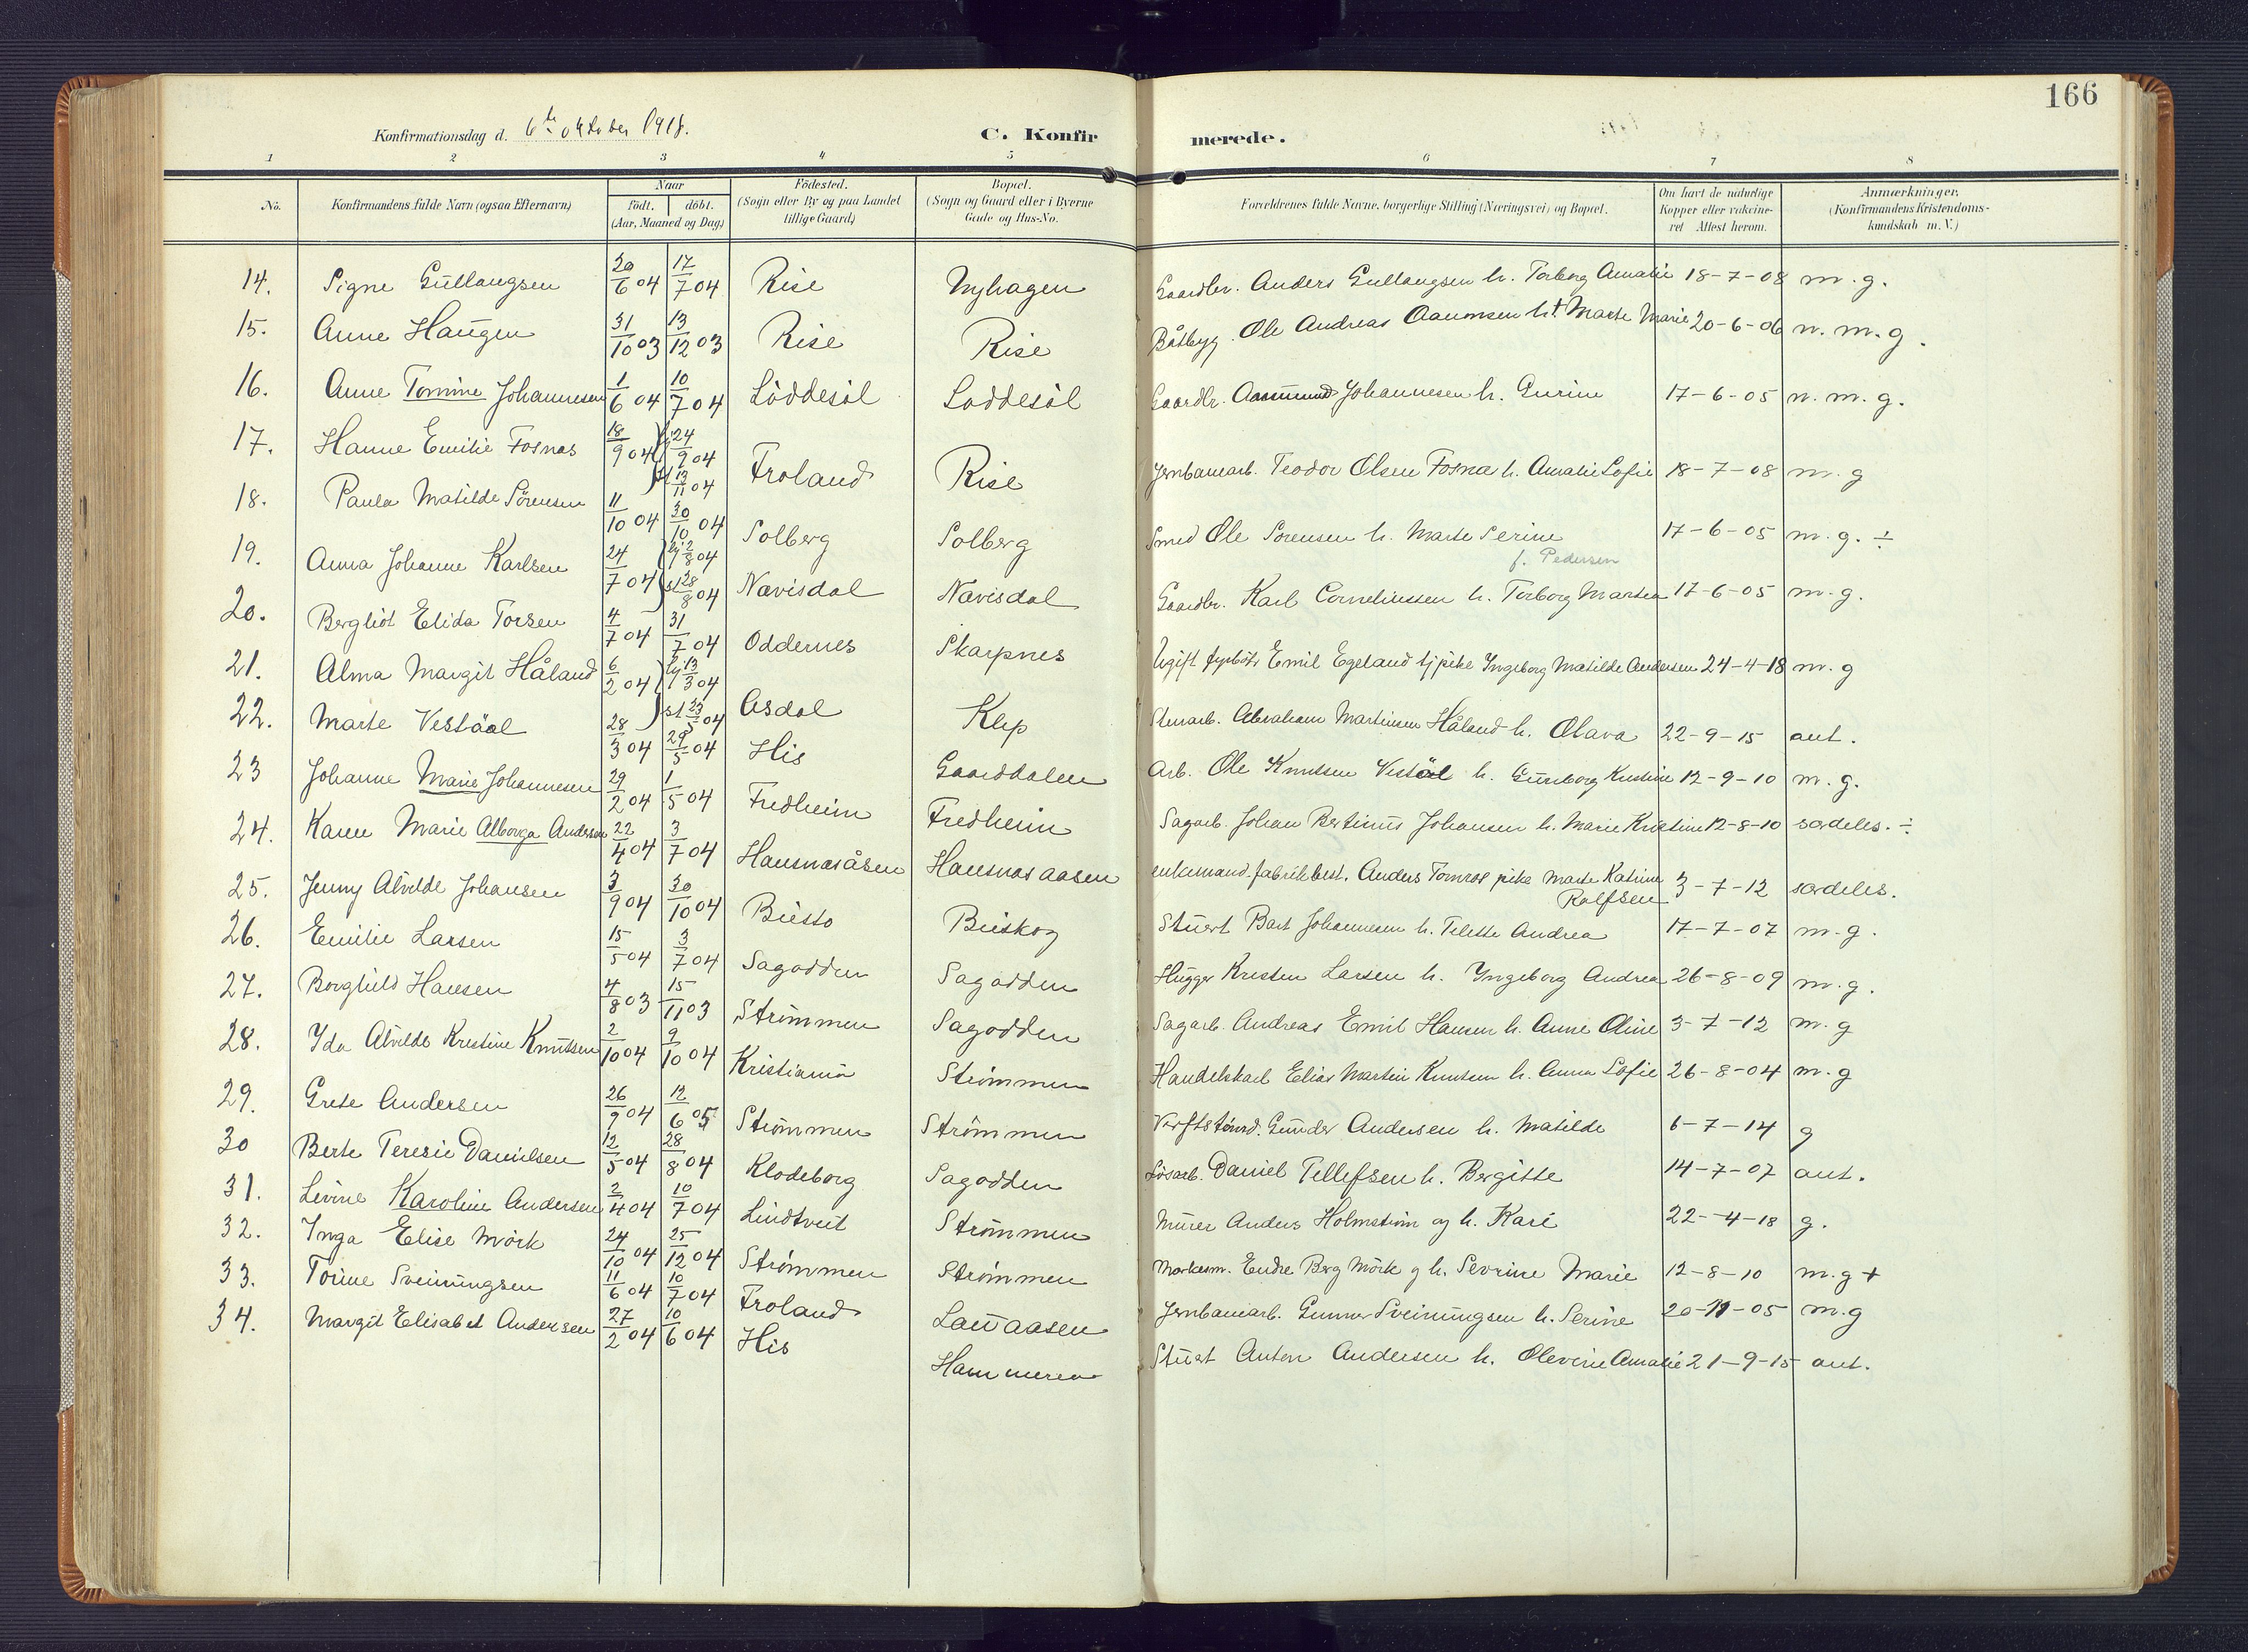 166
Konfirmationsdag d. 6te oktober 1918. C. Konfirmerede.
1 2 3 4 5 6 7 8
No. Konfirmandens fulde Navn (ogsaa Efternavn) Naar født. døbt. (Aar, Maaned og Dag) Fødested. (Sogn eller By og paa Landet tillige Gaard) Bopæl. (Sogn og Gaard eller i Byerne Gade og Hus-No. Forældrenes fulde Navne, borgerlige Stilling (Næringsvei) og Bopæl. Om havt de naturlige Kopper eller vakcineret Attest herom. Anmærkninger. (Konfirmandens Kristendomskundskab m. V.)
14. Signe Gullaugsen 20/6 04 17/7 04 Rise Nyhagen Gaardbr. Anders Gullaugsen h. Torborg Amalie 18-7-08 m.g.
15. Anne Haugen 31/10 03 13/12 03 Rise Rise Båtbyg. Ole Andreas Aanonsen h.† Marte Marie 20-6-06 n.m.g.
16. Anne Tomine Johannesen 1/6 04 10/7 04 Löddesöl Loddesöl Gaardbr. Aasmund Johannesen h. Gurine 17-6-05 n.m.g.
17. Hanne Emilie Fosnæs 18/9 04 hj 24/9 04 st 13/11 04 Froland Rise Jernbanearb. Teodor Olsen Fosnæs h. Amalie Sofie 18-7-08 m.g
18. Paula Matilde Sörensen 11/10 04 30/10 04 Solberg Solberg Smed Ole Sorensen h. Marte Serine f. Pedersen 17-6-05 m.g. ÷
19. Anna Johanne Karlsen 24/7 04 hj 2/8 04 st 28/8 04 Nævisdal Nævisdal Gaardbr. Karl Corneliussen h. Torborg Martea 17-6-05 m.g.
20. Bergliot Elida Torsen 4/7 04 31/7 04 Oddernes Skarpnes Ugift fyrböter Emil Egeland tj pike Yngeborg Matilde Andersen 24-4-18 m.g
21. Alma Margit Håland 6/2 04 hj 13/3 04 st 23/5 04 Asdal Klep Stenarb. Abraham Martinsen Håland h. Olava 22-9-15 aut.
22. Marte Vestöl 28/3 04 29/5 04 His Gaarddalen Arb. Ole Knutsen Vestöl h. Gunborg Kristine 12-9-10 m.g.
23 Johanne Marie Johannesen 29/2 04 1/5 04 Fredheim Fredheim Sagarb. Johan Bertinus Johansen h. Marie Kristine 12-8-10 særdeles. ÷
24. Karen Marie Alborga Andersen 22/4 04 3/7 04 Hausnæsåsen Hausnæsaasen enkemand. fabrikbest. Anders Tomras pike Marte Katrine Rolfsen 3-7-12 særdeles.
25. Jenny Alvilde Johansen 3/9 04 30/10 04 Buisto Buiskog Stuert Bart Johannesen h. Telette Andrea 17-7-07 m.g.
26. Emilie Larsen 15/5 04 3/7 04 Sagodden Sagodden Hugger Kristen Larsen h. Yngeborg Andrea 26-8-09 m.g.
27. Borghild Hansen 4/8 03 15/11 03 Strømmen Sagodden Sagarb. Andreas Emil Hansen h. Anne Oline 3-7-12 m.g
28. Yda Alvilde Kristine Knutsen 2/10 04 9/10 04 Kristiania Strømmen Handelskarl Elias Martin Knutsen h. Anna Sofie 26-8-04 m.g
29. Grete Andersen 26/9 04 12/6 05 Strømmen Strømmen Verftstømrd. Gunder Andersen h. Matilde 6-7-14 g
30 Berte Teresie Danielsen 12/5 04 28/8 04 Klodeborg Sagodden Løsarb. Daniel Tellefsen h. Bergitte 14-7-07 aut.
31. Levine Karoline Andersen 2/4 04 10/7 04 Lindtveit Strømmen Murer Anders Holmstrøm og h. Kari 22-4-18 g.
32. Inga Elise Mörk 24/10 04 25/12 04 Strømmen Strømmen Markesm. Endre Berg Mörk og h. Sevrine Marie 12-8-10 m.g +
33. Torine Sveinungsen 11/6 04 10/7 04 Froland Lauvaasen Jernbanearb. Gunner Sveinungsen h. Serine 20-11-05 m.g
34. Margit Elisabet Andersen 27/2 04 10/6 04 His Hammeren Stuert Anton Andersen h. Oleverine Amalie 21-9-15 aut.